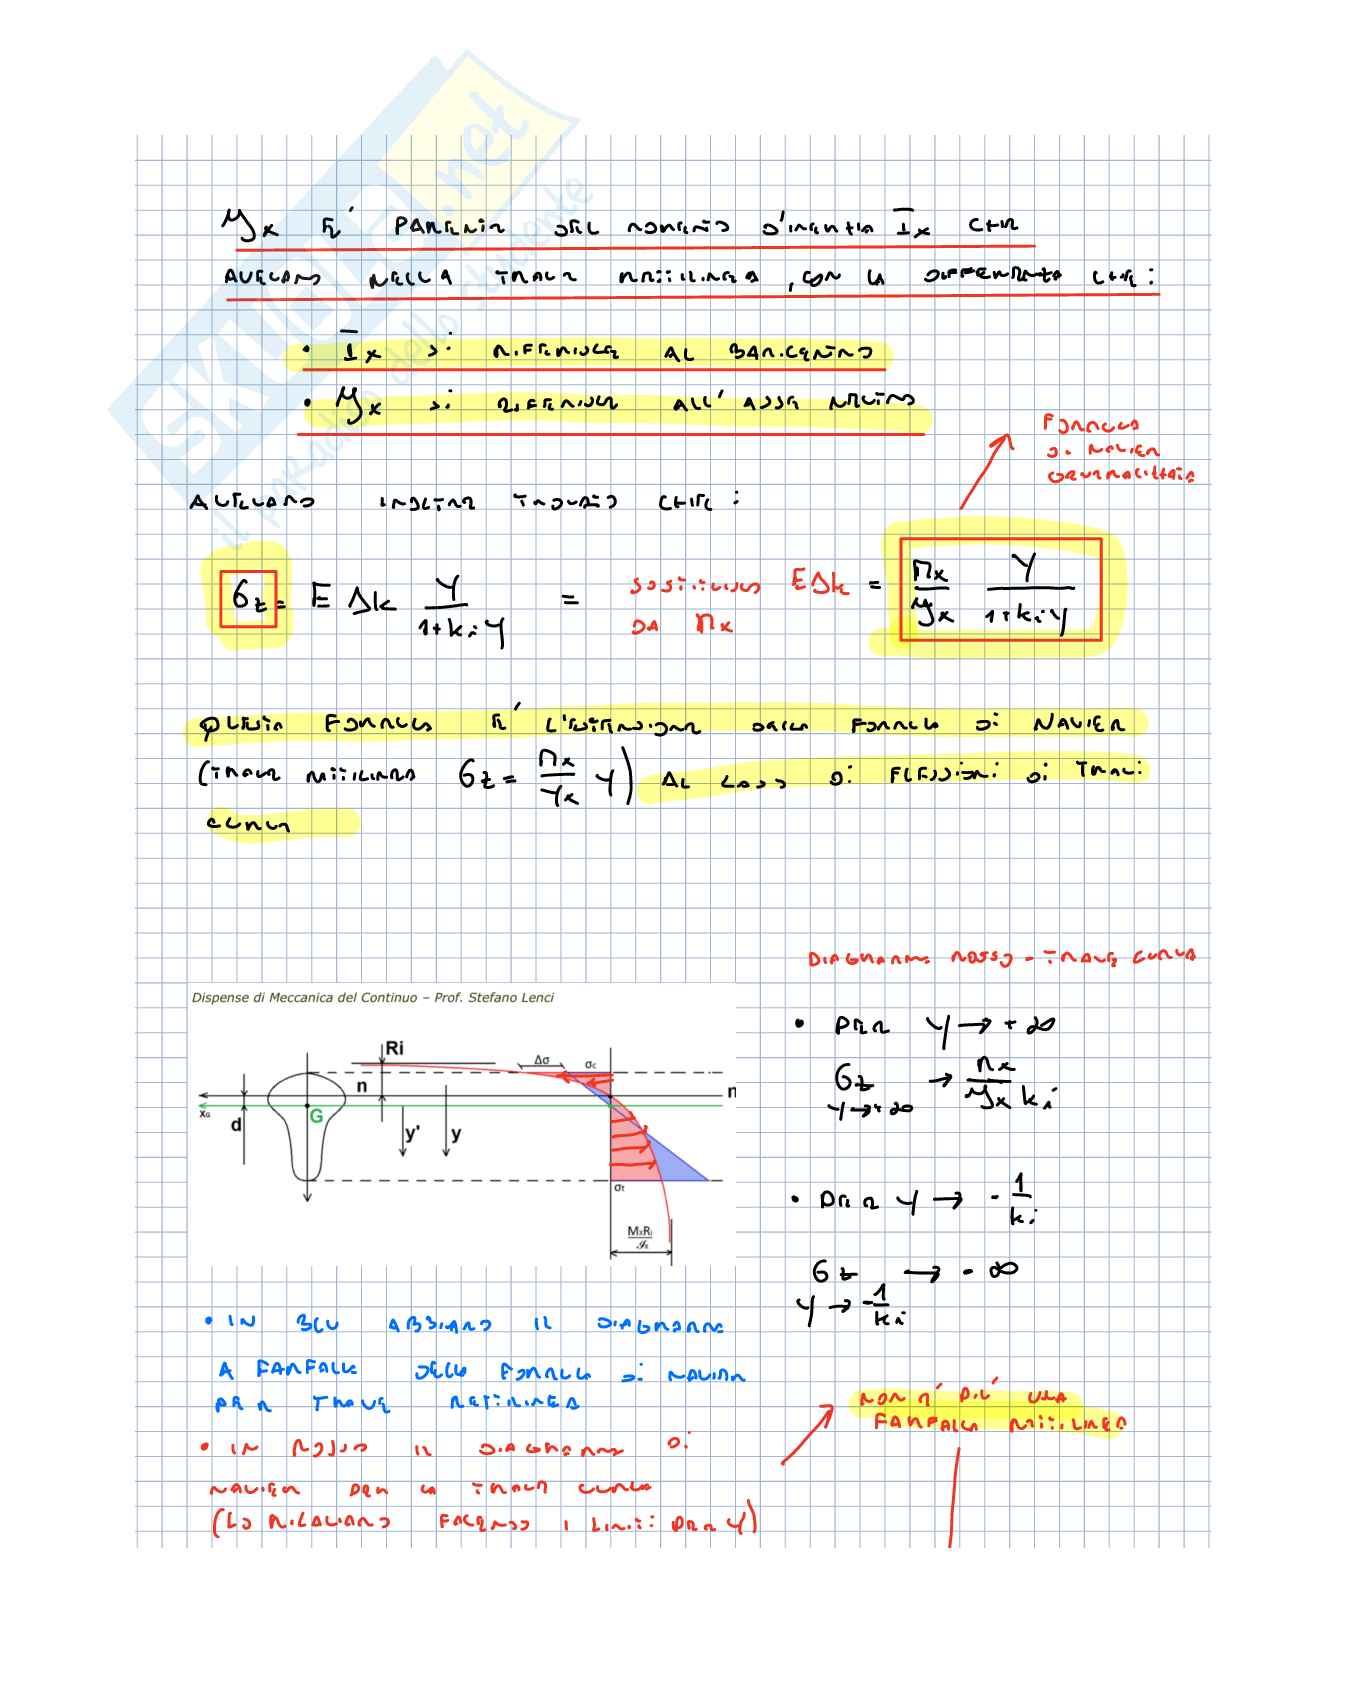 𝒥x è parente del momento d'inerzia Īx che
avevamo nella trave rettilinea, con la differenza che:
• Īx si riferisce al baricentro
• 𝒥x si riferisce all'asse neutro
Formula
di Navier
generalizzata
Avevamo inoltre trovato che:
σz = E Δk y/(1+ki y) = sostituisco EΔk da Mx = Mx/𝒥x y/(1+ki y)
Questa formula è l'estensione della formula di Navier
(trave rettilinea σz = Mx/Jx y) al caso di flessioni di travi
curve
Diagramma rosso - trave curva
Dispense di Meccanica del Continuo – Prof. Stefano Lenci
• Per y → +∞
σz → Mx/(𝒥x ki)
y→+∞
Ri
Δσ
σc
n
n
xG
G
d
y'
y
σt
MxRi/𝒥x
• Per y → -1/ki
σz → -∞
y → -1/ki
• In blu abbiamo il diagramma
a farfalla della formula di Navier
per trave rettilinea
• In rosso il diagramma di
Navier per la trave curva
(lo ricaviamo facendo i limiti per y)
Non è più una
farfalla rettilinea
SKUOLA.net
il paradiso dello studente